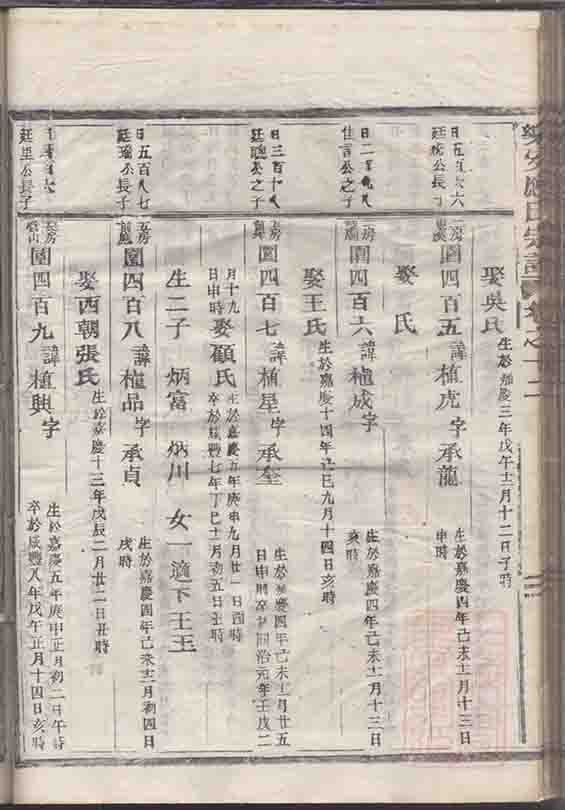 娶吳氏 生於嘉慶三年戊午十二月十二日子時
廷 公長子
圖四百五 諱植虎 字承龍 生於嘉慶四年己未十二月十三日申時
娶 氏
佳言公之子
圖四百六 諱植成 字 生於嘉慶四年己未十一月十三日亥時
娶王氏 生於嘉慶十四年己巳九月十四日亥時
日三百十八
廷聰公之子
圖四百七 諱植星 字承奎 生於嘉慶四年己未十二月廿五日申時卒於同治元年壬戌二
月十九日申時 娶顧氏 生於嘉慶五年庚申九月廿一日酉時
卒於咸豐七年丁巳十二月初五日丑時
生二子 炳富 炳川 女一適下王玉
日五百八七
廷瑤公長子
圖四百八 諱植品 字承貞 生於嘉慶四年己未十二月初四日戌時
娶西朝張氏 生於嘉慶十三年戊辰二月廿二日丑時
廷里公長子
圖四百九 諱植興 字 生於嘉慶五年庚申正月初二日午時
卒於咸豐八年戊午正月十四日亥時